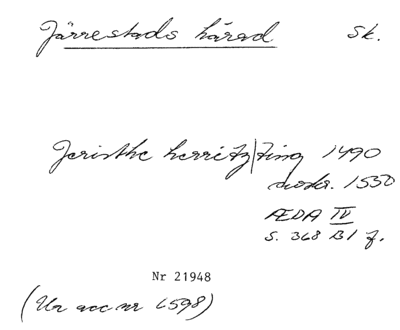 Järrestads härad Sk.
Jeristhe herritz|ting 1490
avskr. 1550
ÆDA IV
s. 368 B1 f.
Nr 21948
(Ur acc nr 6598)